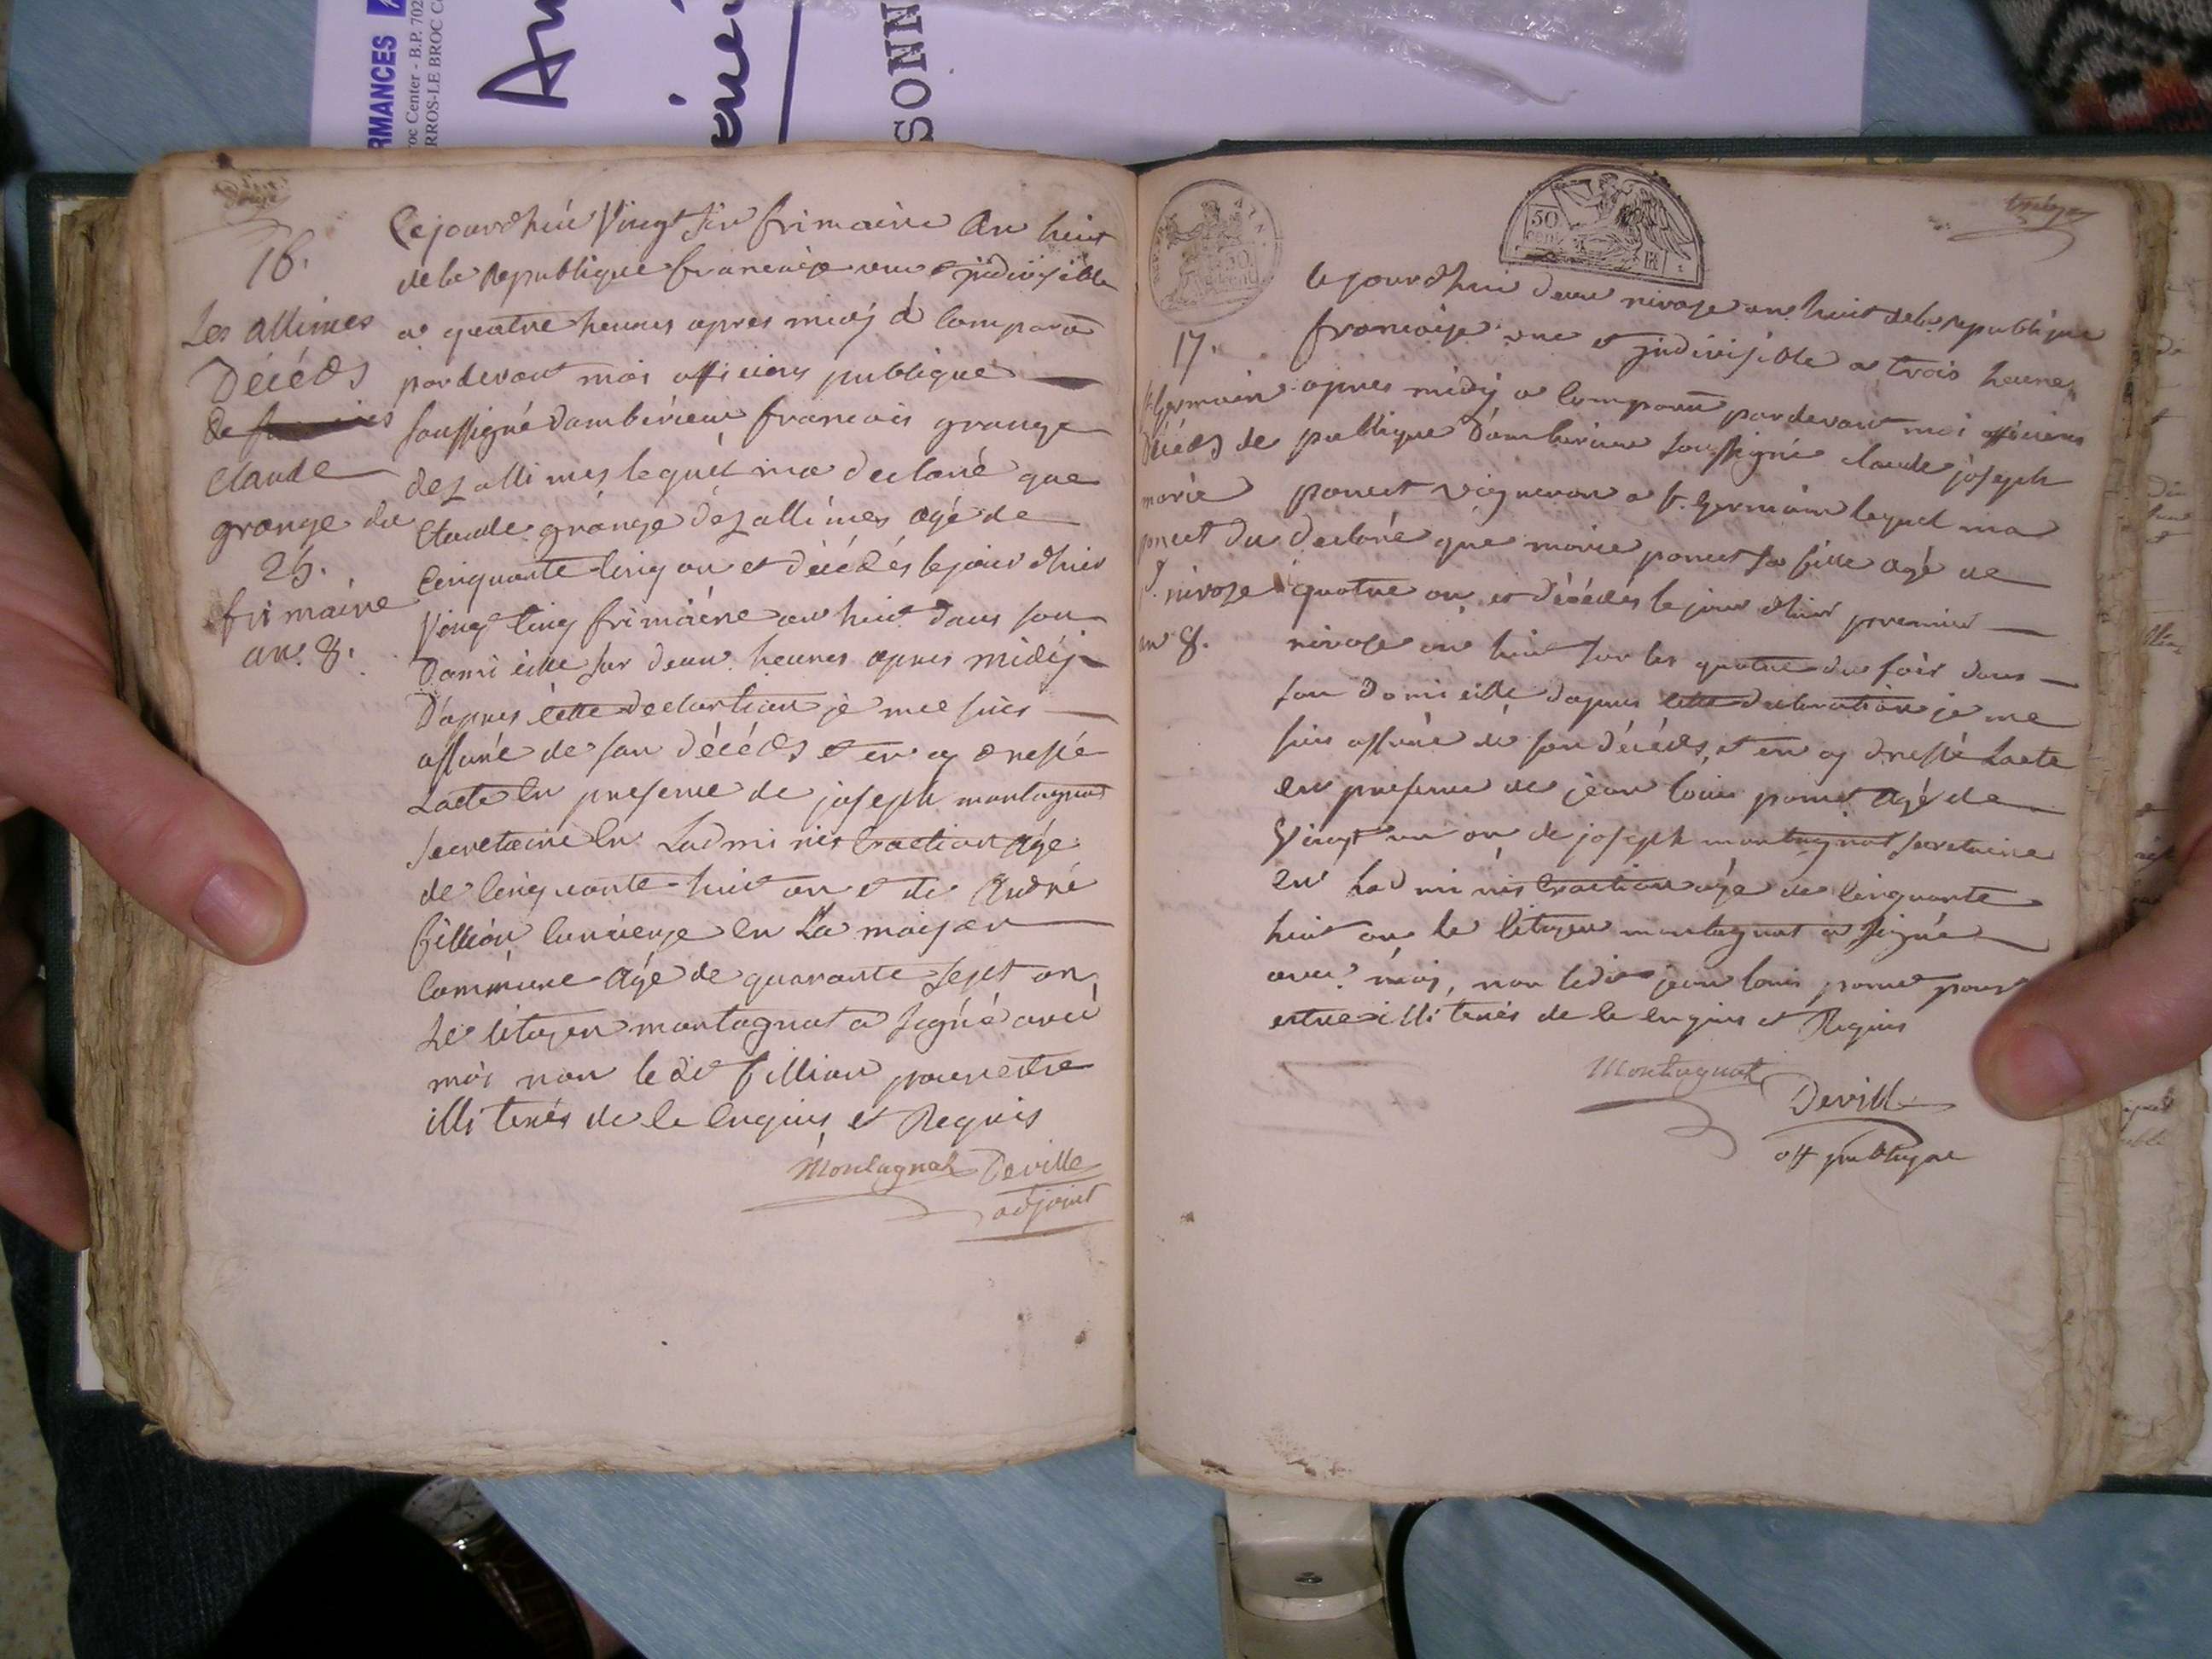 RMANCES
oc Center - B.P. 702
RROS-LE BROC C
An
SONN
16.
Les allimes
Décéds
De
Claude
grange du
25.
frimaire
an. 8.
Cejourdhui Vingt six frimaire an huit
de la Republique francaise une et jndivisible
a quatre heures apres midj à Comparu
pardevant moi officiers publique
soussigné dambérieux francois grange
dez allimes lequel ma declaré que
Claude grange dez allimes agé de
Cinquante Cinq an et décédés le jour dhier
Vingt Cinq frimaire an huit dans son
Domicille sur deux heures apres midij
D'apres Cette declartion je me suis
assuré de son décéds et en ay dressé
Lacte En presence de joseph montagnat
secretaire En Ladministraction agé
de Cinquante huit an et de André
fillion Concierge En La maison
Commune Agé de quarante sept an,
Le Citoyen montagnat a signé avec
moi non ledit fillion pour estre
illiterés de Ce Enquis et Requis
Montagnat Deville
adjoint
50
cent
treize
17.
st Germain
Décéds de
marie
poncet du
1. nivoze
an 8.
Cejourdhui deux nivoze an huit de la republique
francaise une et jndivisible a trois heures
apres midij a Comparu pardevant moi officiers
publique D'amberieux soussigné claude joseph
poncet vigneron a st. Germain lequel ma
declaré que marie poncet sa fille agé de
quatre an, et décédés le jour dhier premier
nivoze an huit sur les quatre du soir dans
son Domicille dapres Cette declaration je me
suis assuré de son décéds, et en ay dressé Lacte
En presence de jean louis poncet agé de
Vingt un an, de joseph montagnat secretaire
En Ladministraction agé de Cinquante
huit an le Citoyen montagnat a signé
avec moi, non ledit jean louis poncet pour
estre illiterés de Ce Enquis et Requis
Montagnat
Deville
off publique